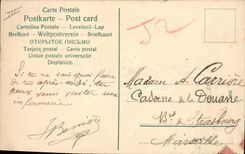 Carte Postale
Postkarte - Post card
Cartolina Postale - Levelező-Lap
Brefkort - Weltpostverein - Briefkaart
ОТКРЫТОЕ ПИСЬМО
Tarjeta postal - Dopisnice
Union postale universelle
Dopisnice.
J2
Si tu ne sais quoi faire
de tes après midi, tu
peux venir visiter une
infirmerie.
Madame A Carrière
Caserne de la Douane
Bd de Strasbourg
Marseille